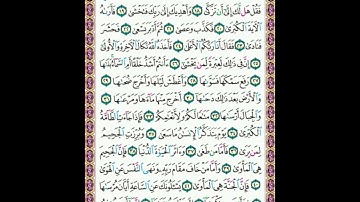 فَقُلْ هَل لَّكَ إِلَىٰٓ أَن تَزَكَّىٰ ١٨ وَأَهْدِيَكَ إِلَىٰ رَبِّكَ فَتَخْشَىٰ ١٩ فَأَرَىٰهُ
ٱلْءَايَةَ ٱلْكُبْرَىٰ ٢٠ فَكَذَّبَ وَعَصَىٰ ٢١ ثُمَّ أَدْبَرَ يَسْعَىٰ ٢٢ فَحَشَرَ
فَنَادَىٰ ٢٣ فَقَالَ أَنَا۠ رَبُّكُمُ ٱلْأَعْلَىٰ ٢٤ فَأَخَذَهُ ٱللَّهُ نَكَالَ ٱلْءَاخِرَةِ وَٱلْأُولَىٰٓ
٢٥ إِنَّ فِى ذَٰلِكَ لَعِبْرَةً لِّمَن يَخْشَىٰٓ ٢٦ ءَأَنتُمْ أَشَدُّ خَلْقًا أَمِ ٱلسَّمَآءُ بَنَىٰهَا
٢٧ رَفَعَ سَمْكَهَا فَسَوَّىٰهَا ٢٨ وَأَغْطَشَ لَيْلَهَا وَأَخْرَجَ ضُحَىٰهَا ٢٩
وَٱلْأَرْضَ بَعْدَ ذَٰلِكَ دَحَىٰهَآ ٣٠ أَخْرَجَ مِنْهَا مَآءَهَا وَمَرْعَىٰهَا ٣١
وَٱلْجِبَالَ أَرْسَىٰهَا ٣٢ مَتَٰعًا لَّكُمْ وَلِأَنْعَٰمِكُمْ ٣٣ فَإِذَا جَآءَتِ ٱلطَّآمَّةُ
ٱلْكُبْرَىٰ ٣٤ يَوْمَ يَتَذَكَّرُ ٱلْإِنسَٰنُ مَا سَعَىٰ ٣٥ وَبُرِّزَتِ ٱلْجَحِيمُ
لِمَن يَرَىٰ ٣٦ فَأَمَّا مَن طَغَىٰ ٣٧ وَءَاثَرَ ٱلْحَيَوٰةَ ٱلدُّنْيَا ٣٨ فَإِنَّ ٱلْجَحِيمَ
هِىَ ٱلْمَأْوَىٰ ٣٩ وَأَمَّا مَنْ خَافَ مَقَامَ رَبِّهِۦ وَنَهَى ٱلنَّفْسَ عَنِ ٱلْهَوَىٰ
٤٠ فَإِنَّ ٱلْجَنَّةَ هِىَ ٱلْمَأْوَىٰ ٤١ يَسْـَٔلُونَكَ عَنِ ٱلسَّاعَةِ أَيَّانَ مُرْسَىٰهَا